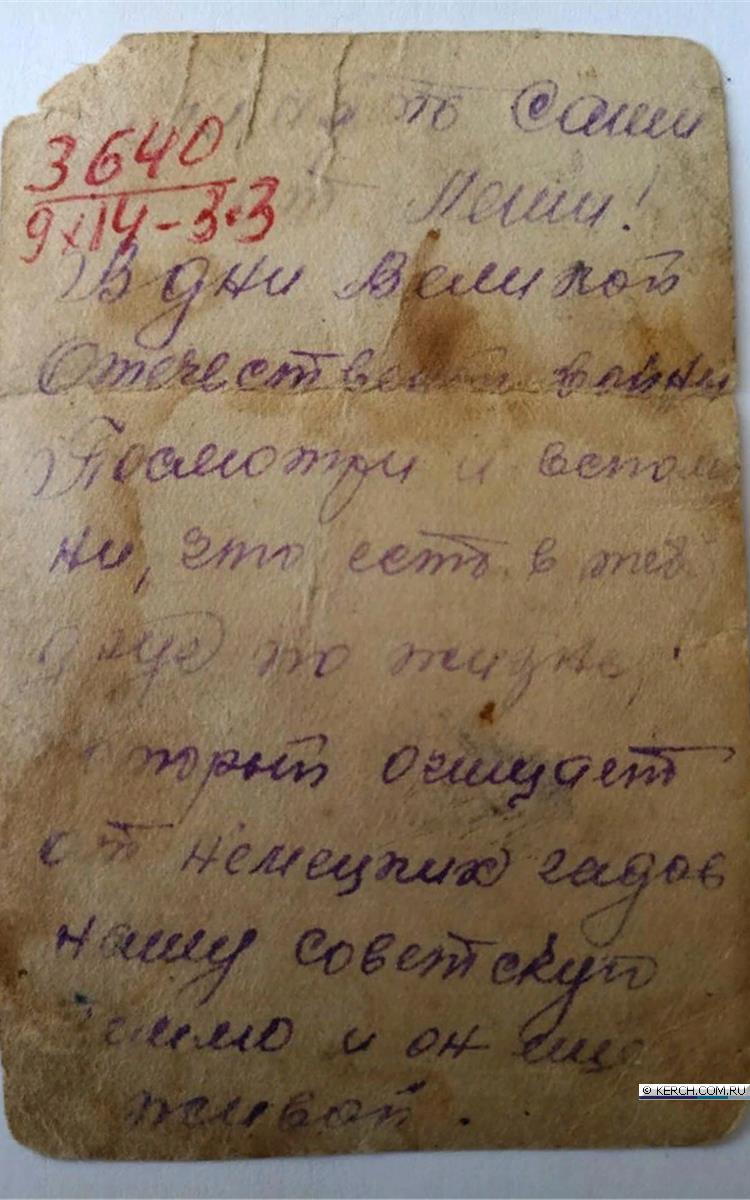 Саши
3640
Маши!
9х14-3·3
В дни Великой
Отечественой войны
Посмотри и вспом
ни, что есть в теб
друг по жизне,
торый очищает
от немецких гадов
нашу советскую
землю и он еще
живой.
© KERCH.COM.RU